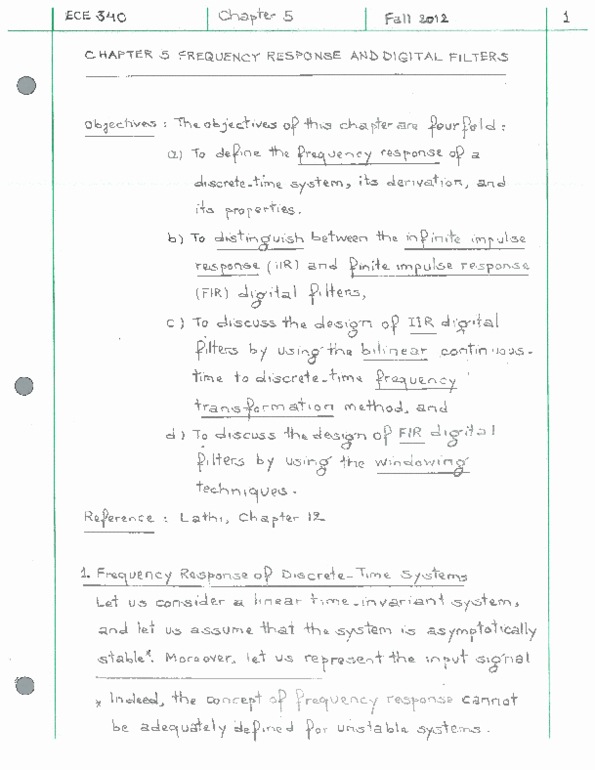 ECE 340 Chapter 5 Fall 2012 1
CHAPTER 5 FREQUENCY RESPONSE AND DIGITAL FILTERS
Objectives : The objectives of this chapter are fourfold :
a) To define the frequency response of a
discrete-time system, its derivation, and
its properties.
b) To distinguish between the infinite impulse
response (IIR) and finite impulse response
(FIR) digital filters,
c) To discuss the design of IIR digital
filters by using the bilinear continuous-
time to discrete-time frequency
transformation method, and
d) To discuss the design of FIR digital
filters by using the windowing
techniques.
Reference : Lathi, Chapter 12
1. Frequency Response of Discrete-Time Systems
Let us consider a linear time-invariant system,
and let us assume that the system is asymptotically
stable*. Moreover, let us represent the input signal
* Indeed, the concept of frequency response cannot
be adequately defined for unstable systems.